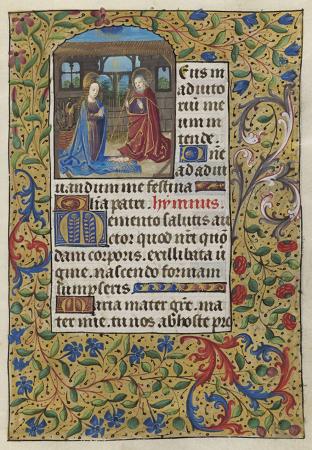 Eus in
ad iuto
rium me
um in
tende.
Dne
ad ad iu
uandum me festina
Glia patri. hymnus.
Memento salutis au
ctor quod nri quo
dam corporis. ex illibata ui
gine. nascendo formam
sumpseris
Maria mater gre. ma
ter mie. tu nos ab hoste pro